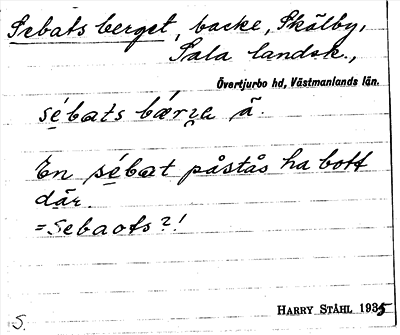 Sebats berget, backe, Skölby,
Sala landsk.,
Övertjurbo hd, Västmanlands län.
sébats bærγe ä.
En sébæt påstås ha bott
där.
=Sebaots?!
S.
HARRY STÅHL 1935